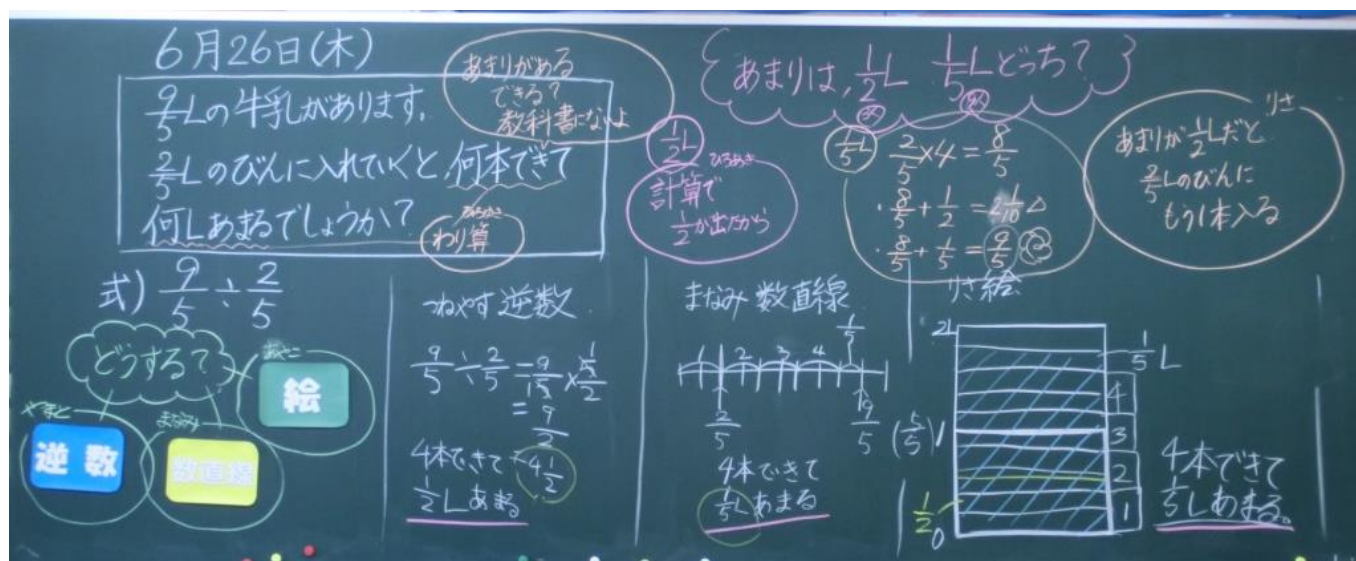 6月26日(木)
9/5Lの牛乳があります。
2/5Lのびんに入れていくと、何本できて
何Lあまるでしょうか?
あまりがある
できる?
教科書にないよ
わり算
あまりは、1/2L 1/5Lどっち?
1/2L
ひろあき
計算で
1/2が出たから
1/5L
2/5×4=8/5
・8/5+1/2=2 1/10△
・8/5+1/5=9/5
りさ
あまりが1/2Lだと
2/5Lのびんに
もう1本入る
式) 9/5÷2/5
どうする?
あやこ
絵
やまと
逆数
まなみ
数直線
つねやす 逆数
9/5÷2/5=9/5×5/2
=9/2
=4 1/2
4本できて
1/2Lあまる
まなみ 数直線
1 2 3 4 1/5
2/5 9/5
4本できて
1/5Lあまる
りさ 絵
2L
1/5L
4
(5/5)1
3
2
1/2
1
0
4本できて
1/5Lあまる。